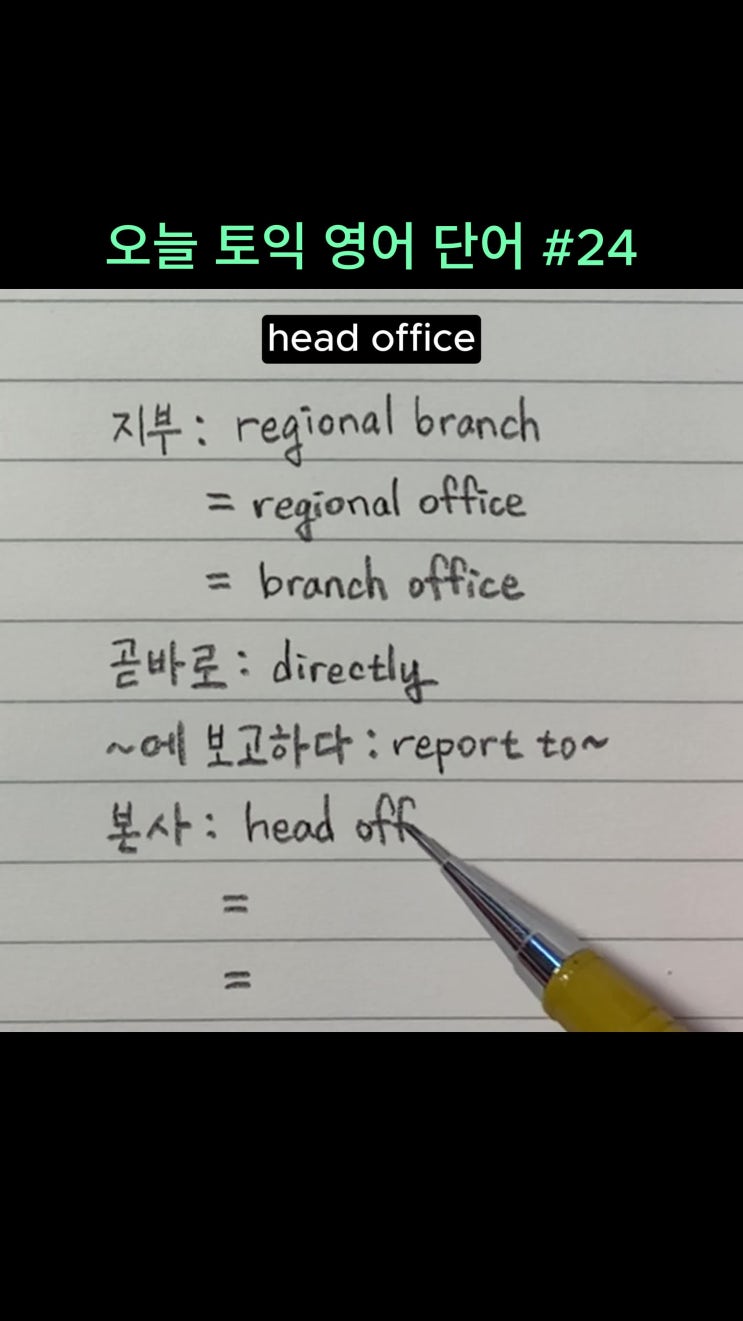 오늘 토익 영어 단어 #24
head office
지부: regional branch
= regional office
= branch office
곧바로: directly
~에 보고하다: report to~
본사: head off
=
=